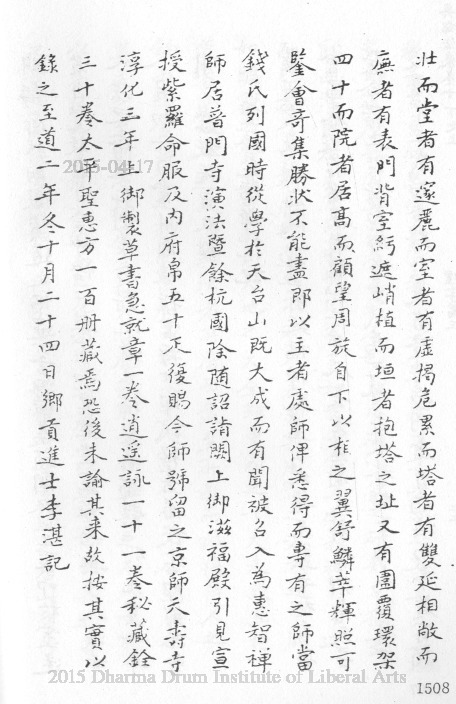 壯而堂者有邃麗而室者有虛揭危累而塔者有雙延相敞而
廡者有表門背室紆遮峭植而垣者抱塔之址又有園覆環架
四十而院者居高而顧望周旋自下以柱之翼舒鱗萃輝照可
鑒會奇集勝狀不能盡即以主者處師俾悉得而專有之師當
錢氏列國時從學於天台山既大成而有聞被召入為惠智禪
師居普門寺演法暨餘杭國除随詔詣闕上御滋福殿引見宣
授紫羅命服及內府帛五十疋復賜今師號留之京師天壽寺
淳化三年上御製草書急就章一卷逍遥詠一十一卷秘藏銓
三十卷太平聖惠方一百册藏焉恐後未諭其来故按其實以
錄之至道二年冬十月二十四日鄉貢進士李湛記
2015-04-17
2015 Dharma Drum Institute of Liberal Arts
1508